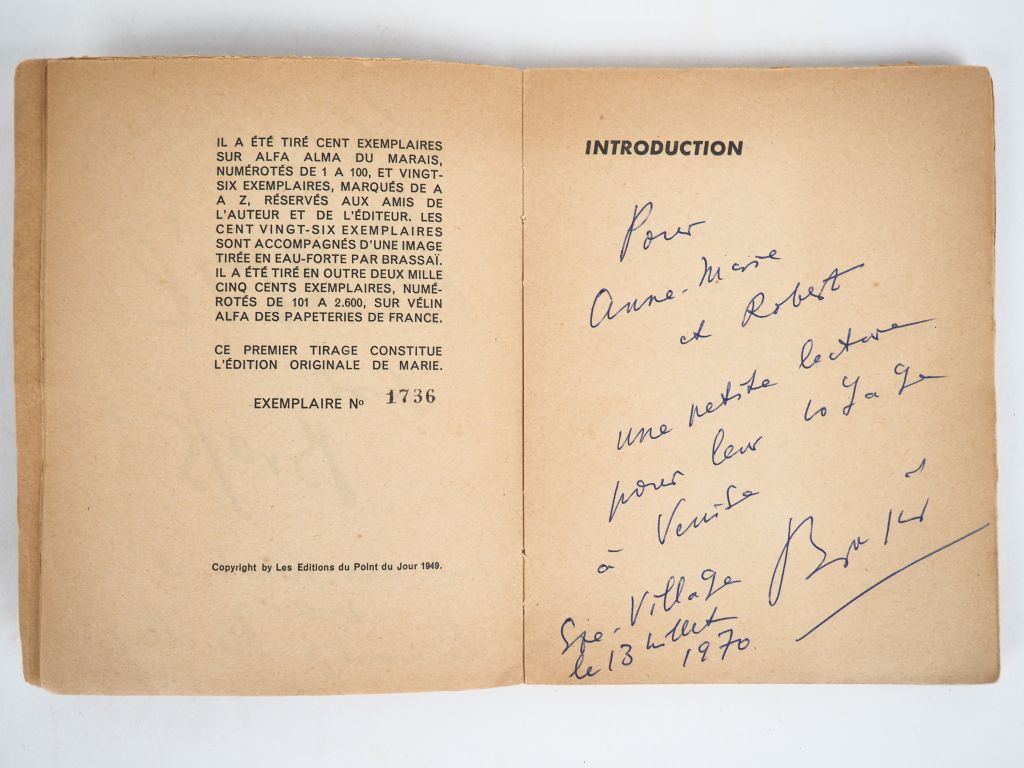 IL A ÉTÉ TIRÉ CENT EXEMPLAIRES
SUR ALFA ALMA DU MARAIS,
NUMÉROTÉS DE 1 A 100, ET VINGT-
SIX EXEMPLAIRES, MARQUÉS DE A
A Z, RÉSERVÉS AUX AMIS DE
L'AUTEUR ET DE L'ÉDITEUR. LES
CENT VINGT-SIX EXEMPLAIRES
SONT ACCOMPAGNÉS D'UNE IMAGE
TIRÉE EN EAU-FORTE PAR BRASSAÏ.
IL A ÉTÉ TIRÉ EN OUTRE DEUX MILLE
CINQ CENTS EXEMPLAIRES, NUMÉ-
ROTÉS DE 101 A 2.600, SUR VÉLIN
ALFA DES PAPETERIES DE FRANCE.
CE PREMIER TIRAGE CONSTITUE
L'ÉDITION ORIGINALE DE MARIE.
EXEMPLAIRE No 1736
Copyright by Les Editions du Point du Jour 1949.
INTRODUCTION
Pour
Anne-Marie
et Robert
une petite lecture
pour leur voyage
à Venise
Brassaï
Eze-Village
le 13 juillet
1970